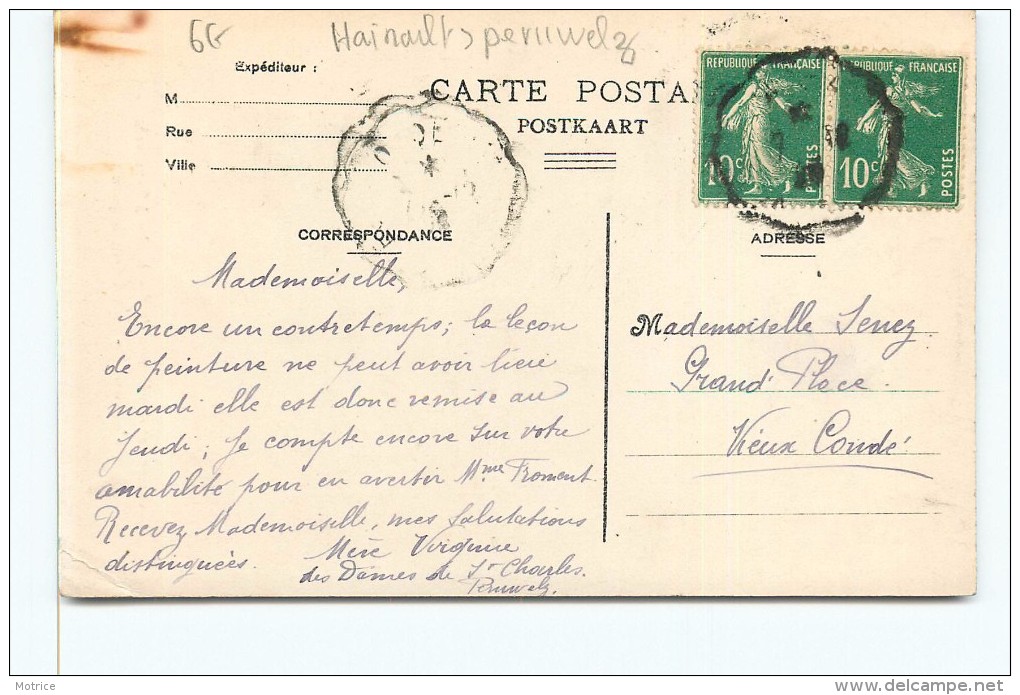 6G
Hainault > peruwelz
Expéditeur :
M
Rue
Ville
CARTE POSTA
POSTKAART
REPUBLIQUE FRANÇAISE
10c POSTES
REPUBLIQUE FRANÇAISE
10c POSTES
DE
CORRESPONDANCE
Mademoiselle,
Encore un contretemps ; la leçon
de peinture ne peut avoir lieu
mardi elle est donc remise au
jeudi ; Je compte encore sur votre
amabilité pour en avertir Mme Froment.
Recevez Mademoiselle, mes salutations
distinguées. Mère Virginie
des Dames de St Charles.
Peruwelz
ADRESSE
Mademoiselle Senez
Grand' Place.
Vieux Condé
Motrice
delcampe.net